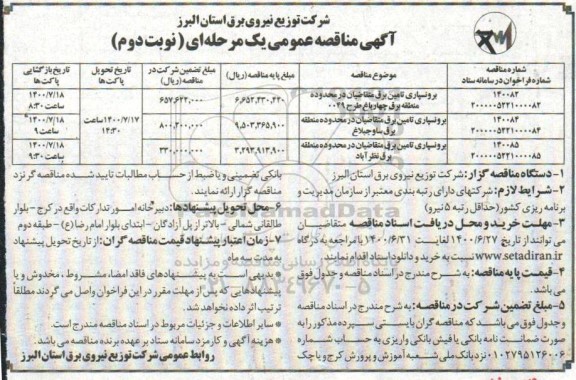 شرکت توزیع نیروی برق استان البرز
آگهی مناقصه عمومی یک مرحله‌ای (نوبت دوم)
شماره مناقصه
شماره فراخوان در سامانه ستاد
موضوع مناقصه
مبلغ پایه مناقصه (ریال)
مبلغ تضمین شرکت در مناقصه (ریال)
تاریخ تحویل پاکت‌ها
تاریخ بازگشایی پاکت‌ها
۱۴۰۰۸۲
۲۰۰۰۰۰۵۴۲۲۱۰۰۰۰۸۲
برونسپاری تامین برق متقاضیان در محدوده منطقه برق چهارباغ طرح ۰۰۲۹
۶,۶۵۲,۴۳۰,۴۲۰
۶۵۷,۶۲۲,۰۰۰
۱۴۰۰/۷/۱۷ ساعت ۱۴:۳۰
۱۴۰۰/۷/۱۸ ساعت ۸:۳۰
۱۴۰۰۸۴
۲۰۰۰۰۰۵۴۲۲۱۰۰۰۰۸۴
برونسپاری تامین برق متقاضیان در محدوده منطقه برق ساوجبلاغ
۹,۵۰۳,۳۶۵,۹۰۰
۸۰۰,۲۰۰,۰۰۰
۱۴۰۰/۷/۱۸ ساعت ۹
۱۴۰۰۸۵
۲۰۰۰۰۰۵۴۲۲۱۰۰۰۰۸۵
برونسپاری تامین برق متقاضیان در محدوده منطقه برق نظرآباد
۳,۲۹۳,۹۱۳,۹۰۰
۳۳۰,۰۰۰,۰۰۰
۱۴۰۰/۷/۱۸ ساعت ۹:۳۰
۱- دستگاه مناقصه گزار: شرکت توزیع نیروی برق استان البرز
۲- شرایط لازم: شرکتهای دارای رتبه بندی معتبر از سازمان مدیریت و
برنامه ریزی کشور (حداقل رتبه ۵ نیرو)
۳- مهلت خرید و محل دریافت اسناد مناقصه: متقاضیان
می توانند از تاریخ ۱۴۰۰/۶/۲۷ لغایت ۱۴۰۰/۶/۳۱ با مراجعه به درگاه
www.setadiran.ir نسبت به خرید و دانلود اسناد اقدام نمایند.
۴- قیمت پایه مناقصه: به شرح مندرج در اسناد مناقصه و جدول فوق
می باشد.
۵- مبلغ تضمین شرکت در مناقصه: به شرح مندرج در اسناد مناقصه
و جدول فوق می باشد که مناقصه گران بایستی سپرده مذکور را به
صورت ضمانت نامه بانکی یا فیش بانکی واریزی به حساب شماره
۰۱۰۲۷۹۵۱۲۶۰۰۶ نزد بانک ملی شعبه آموزش و پرورش کرج و یا چک
بانکی تضمینی و یا ضبط از حساب مطالبات تایید شده مناقصه گر نزد
مناقصه گزار ارائه نمایند.
۶- محل تحویل پیشنهادها: دبیرخانه امور تدارکات واقع در کرج - بلوار
طالقانی شمالی - بالاتر از پل آزادگان - ابتدای بلوار امام رضا (ع) - طبقه دوم
۷- زمان اعتبار پیشنهاد قیمت مناقصه گران: از تاریخ تحویل پیشنهاد
به مدت سه ماه
* بدیهی است به پیشنهادهای فاقد امضا، مشروط، مخدوش و یا
پیشنهادهایی که پس از مهلت مقرر در این فراخوان واصل می گردند مطلقاً
ترتیب اثر داده نخواهد شد.
* سایر اطلاعات و جزئیات مربوط در اسناد مناقصه مندرج است.
* هزینه آگهی و کارمزد سامانه ستاد بر عهده برنده مناقصه می باشد.
روابط عمومی شرکت توزیع نیروی برق استان البرز